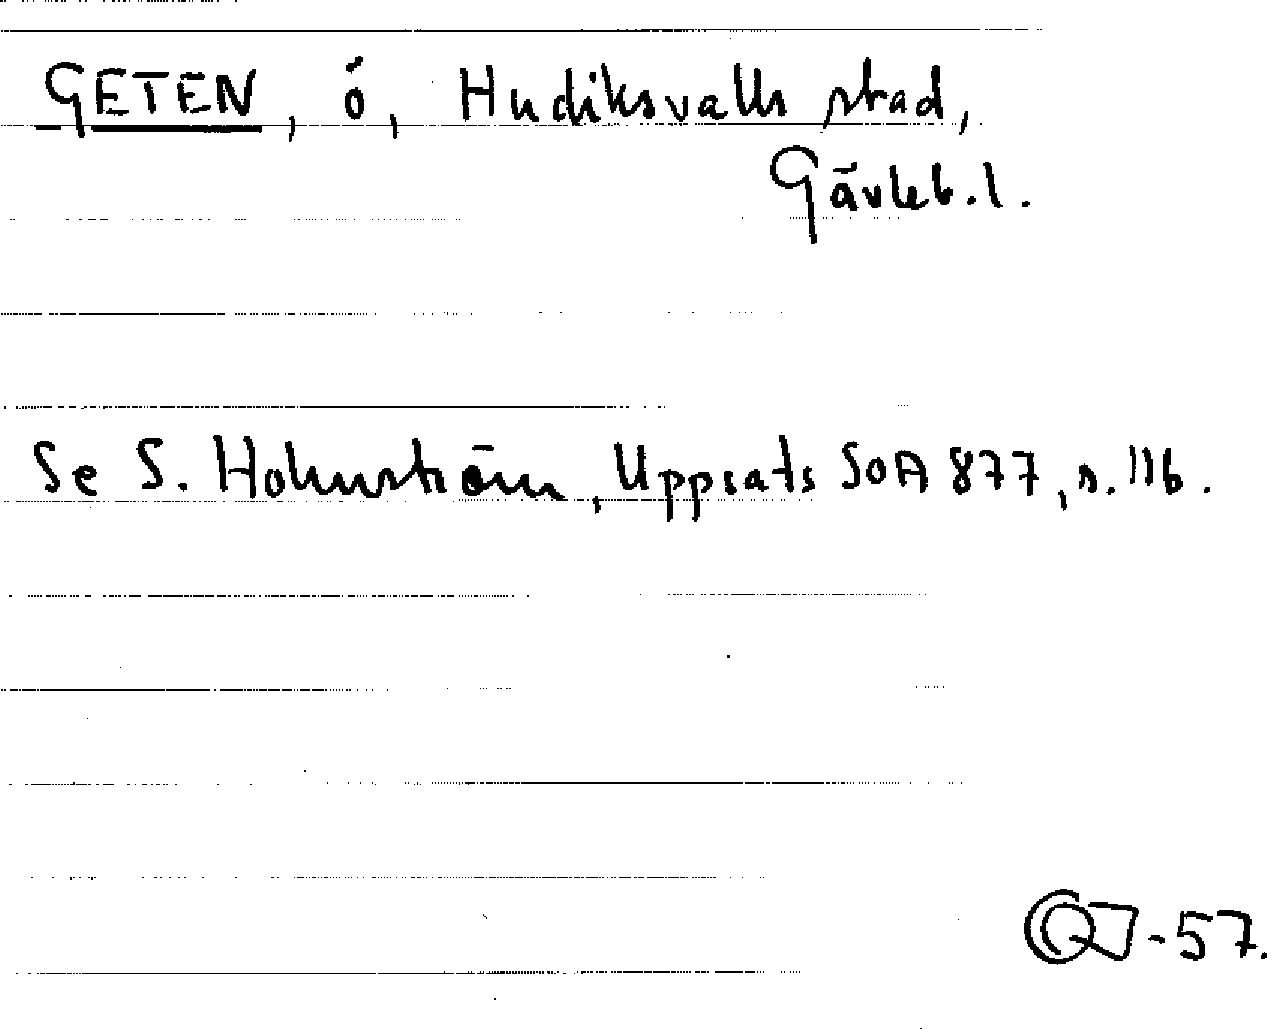 GETEN, ö, Hudiksvalls stad,
Gävleb. l.
Se S. Holmström, Uppsats SOA 877, s. 116.
-57.